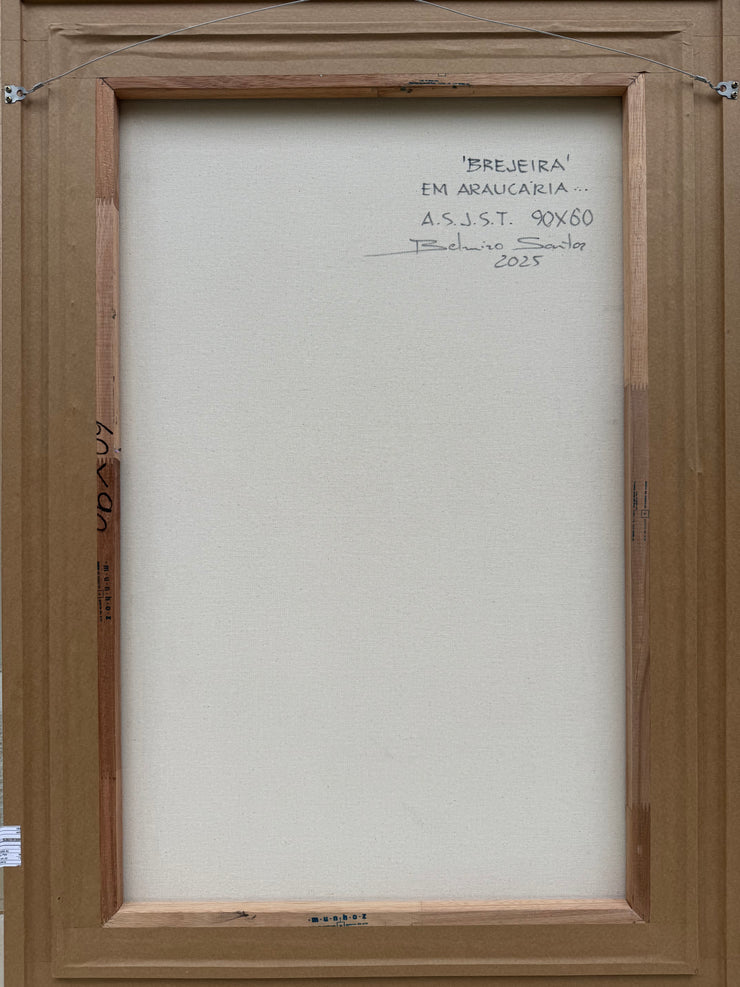 'BREJEIRA'
EM ARAUCÁRIA...
A.S.J.S.T. 90X60
Belmiro Santos
2025
60x90
munhoz
munhoz